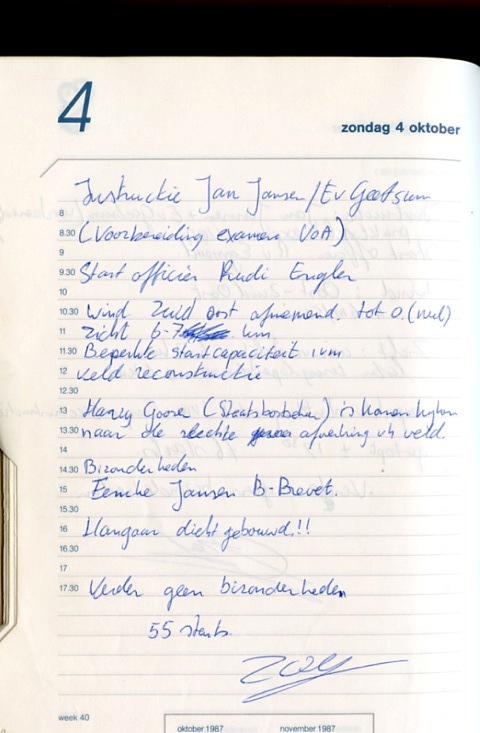 4
zondag 4 oktober
Instructie Jan Jansen / Ev Geetsum
8
8.30 (Voorbereiding examen VOA)
9
9.30 Start officier Rudi Engler
10
10.30 Wind Zuid oost afnemend. tot 0.(nul)
11 Zicht 6-7 km
11.30 Beperkte startcapaciteit ivm
12 veld reconstructie
12.30
13 Harry (Staatsbosbeheer) is komen kijken
13.30 naar de slechte afwerking vh veld.
14
14.30 Bizonderheden
15 Femke Jansen B-Brevet.
15.30
16 Hangaar dicht gebouwd.!!
16.30
17
17.30 Verder geen bizonderheden
55 starts.
week 40
oktober 1987 november 1987